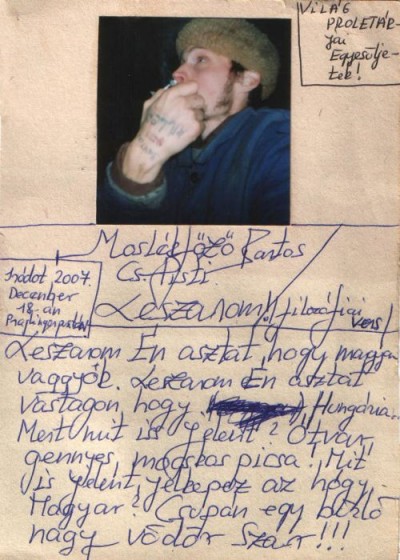 VILÁG
PROLETÁR-
jai
Egyesülje-
tek!
Moslékfőző Bartos
Cs-Pisti
Íródot 2007.
December
18-án
Leszarom! filozófiai
vers
Leszarom Én asztat, hogy magyar
vaggyok. Leszarom Én asztat
vastagon, hogy Hungária.
Mert mit is jelent? Ótvar,
gennyes, mocskos picsa. Mit
is jelent, jelképez az hogy
Magyar? Csupán egy bűzlő
nagy vödör szar!!!